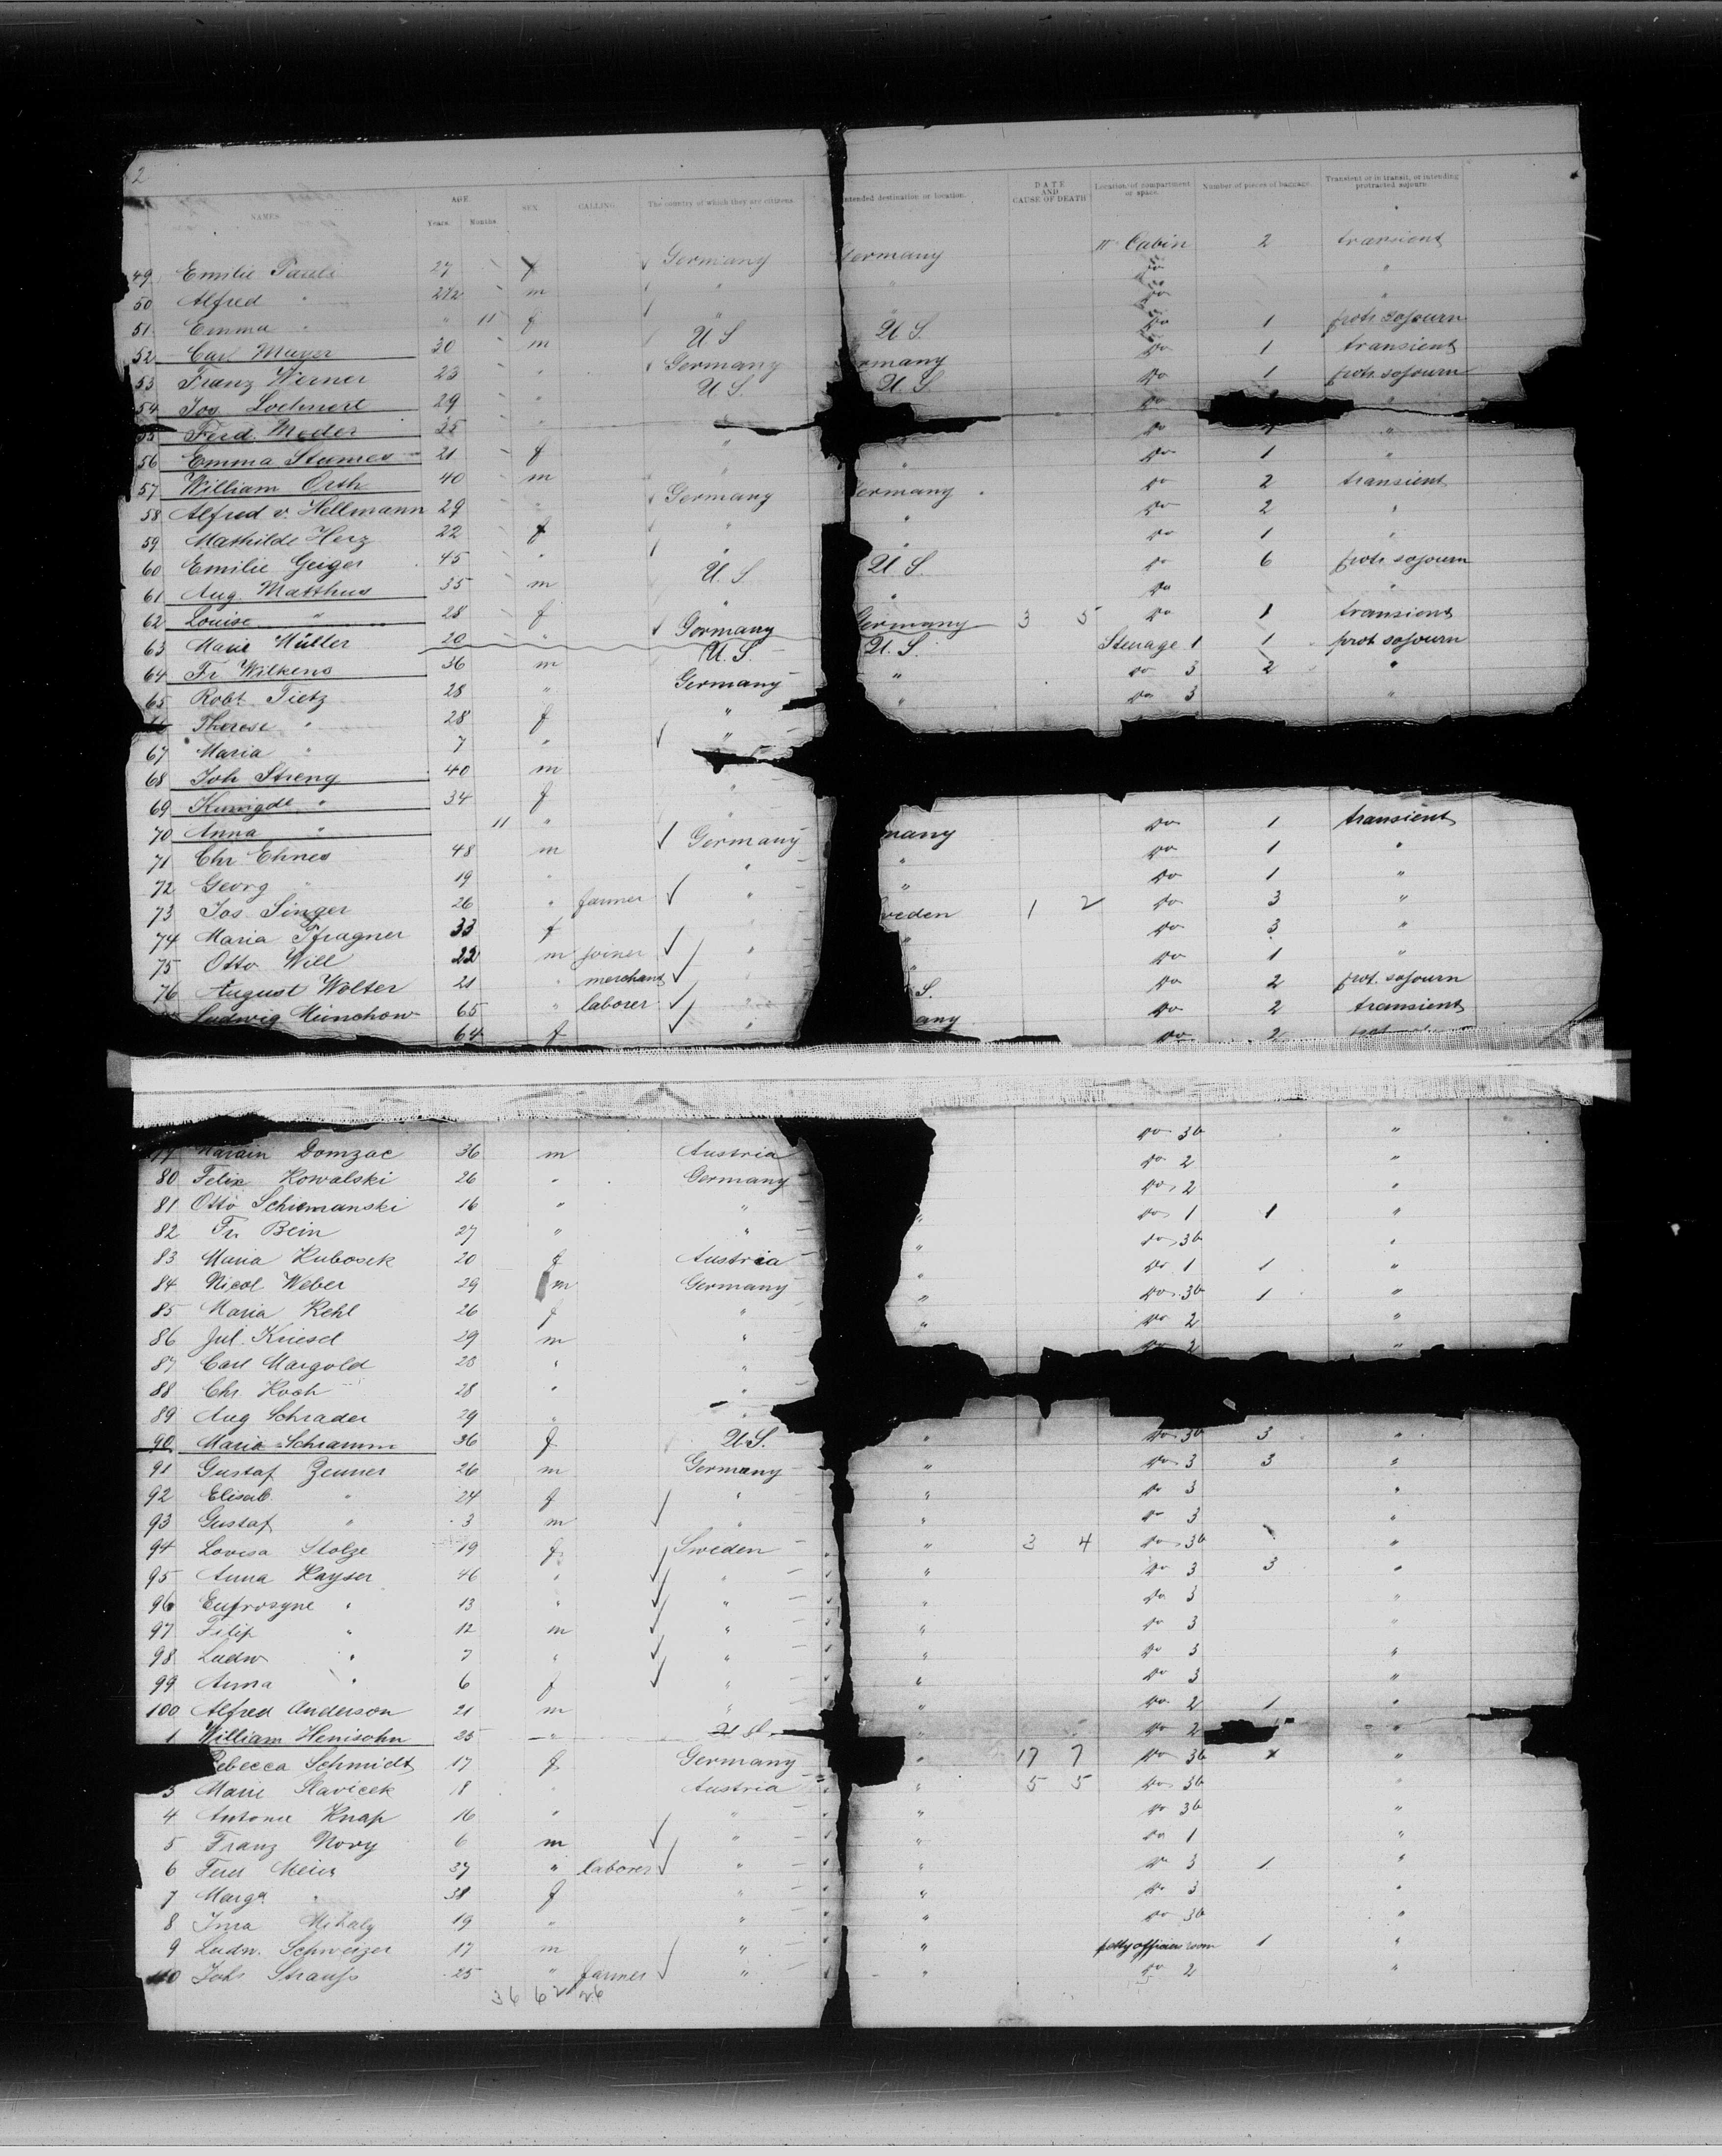 2
NAMES AGE Years Months SEX CALLING The country of which they are citizens Intended destination or location. DATE AND CAUSE OF DEATH Location of compartment or space. Number of pieces of baggage. Transient or in transit, or intending protracted sojourn
49 Emilie 27 f Germany Germany II Cabin 2 transient
50 Alfred " m " " do "
51 Emma " " 11 f " " do "
52 Carl Mayer 30 m U S U S. do 1 protr. sojourn
53 Franz Werner 23 " Germany rmany do 1 transient
54 Jos. Lochnert 29 " U. S. U. S. do 1 protr. sojourn
55 Ferd. Meder 35 " do "
56 Emma Stumes 21 f " " do "
57 William Orth 40 m " " do 1 "
58 Alfred v. Hellmann 29 " Germany ermany do 2 transient
59 Mathilde Herz 22 f " " do 2 "
60 Emilie Geiger 45 " " " do 1 "
61 Aug. Matthus 35 m U. S U S. do 6 protr. sojourn
62 Louise " 28 f " " do "
63 Marie Müller 20 " Germany Germany 3 5 do 1 transient
64 Fr. Wilkens 36 m U. S. U. S. Steerage 1 1 prot. sojourn
65 Robt. Tietz 28 " Germany " do 3 2 "
Therese " 28 f " " do 3 "
67 Maria " 7 " "
68 Joh Streng 40 m
69 Kunigde " 34 f "
70 Anna " 11 " "
71 Chr Ehnes 48 m Germany many do 1 transient
72 Georg " 19 " " " do 1 "
73 Jos. Singer 26 " farmer " " do 1 "
74 Maria Pfragner 33 f " weden 1 2 do 3 "
75 Otto Will 22 m joiner " " do 3 "
76 August Wolter 21 " merchant " " do 1 "
Ludwig Münchow 65 " laborer " S. do 2 prot. sojourn
64 f " any do 2 transient
do 2
Domzac 36 m Austria do 36 "
80 Felix Kowalski 26 " Germany do 2 "
81 Otto Schiemanski 16 " " do 2 "
82 Fr. Bein 27 " " " do 1 1 "
83 Maria Kubosek 20 f Austria " do 36 "
84 Nicol Weber 29 m Germany " do 1 1 "
85 Maria Kehl 26 f " " do 36 1 "
86 Jul. Kriesel 29 m " " do 2 "
87 Carl Margold 28 " " do 2 "
88 Chr. Koch 28 " "
89 Aug Schrader 29 " "
90 Maria Schramm 36 f U. S. " do 36 3 "
91 Gustaf Zeuner 26 m Germany " do 3 3 "
92 Elisab. " 24 f " " do 3 "
93 Gustaf " 3 m " " do 3 "
94 Lovisa Stolze 19 f Sweden " 3 4 do 36 "
95 Anna Kayser 46 " " " do 3 3 "
96 Eufrosyne " 13 " " " do 3 "
97 Filip " 12 m " " do 3 "
98 Ludw " 7 " " " do 3 "
99 Anna " 6 f " " do 3 "
100 Alfred Anderson 21 m " " do 2 1 "
1 William Henisohn 25 " " do 2 "
ebecca Schmidt 17 f Germany " 17 7 do 36 "
3 Marie Slavicek 18 " Austria " 5 5 do 36 "
4 Antonie Knap 16 " " " do 36 "
5 Franz Novy 6 m " " do 1 "
6 Meier 37 " laborer " " do 3 1 "
7 Marga " 38 f " " do 3 "
8 Mihaly 19 " " " do 36 "
9 Ludw. Schweizer 17 m " " petty officers room 1 "
10 Johs Strauss 25 " farmer " " do 2 "
36 62